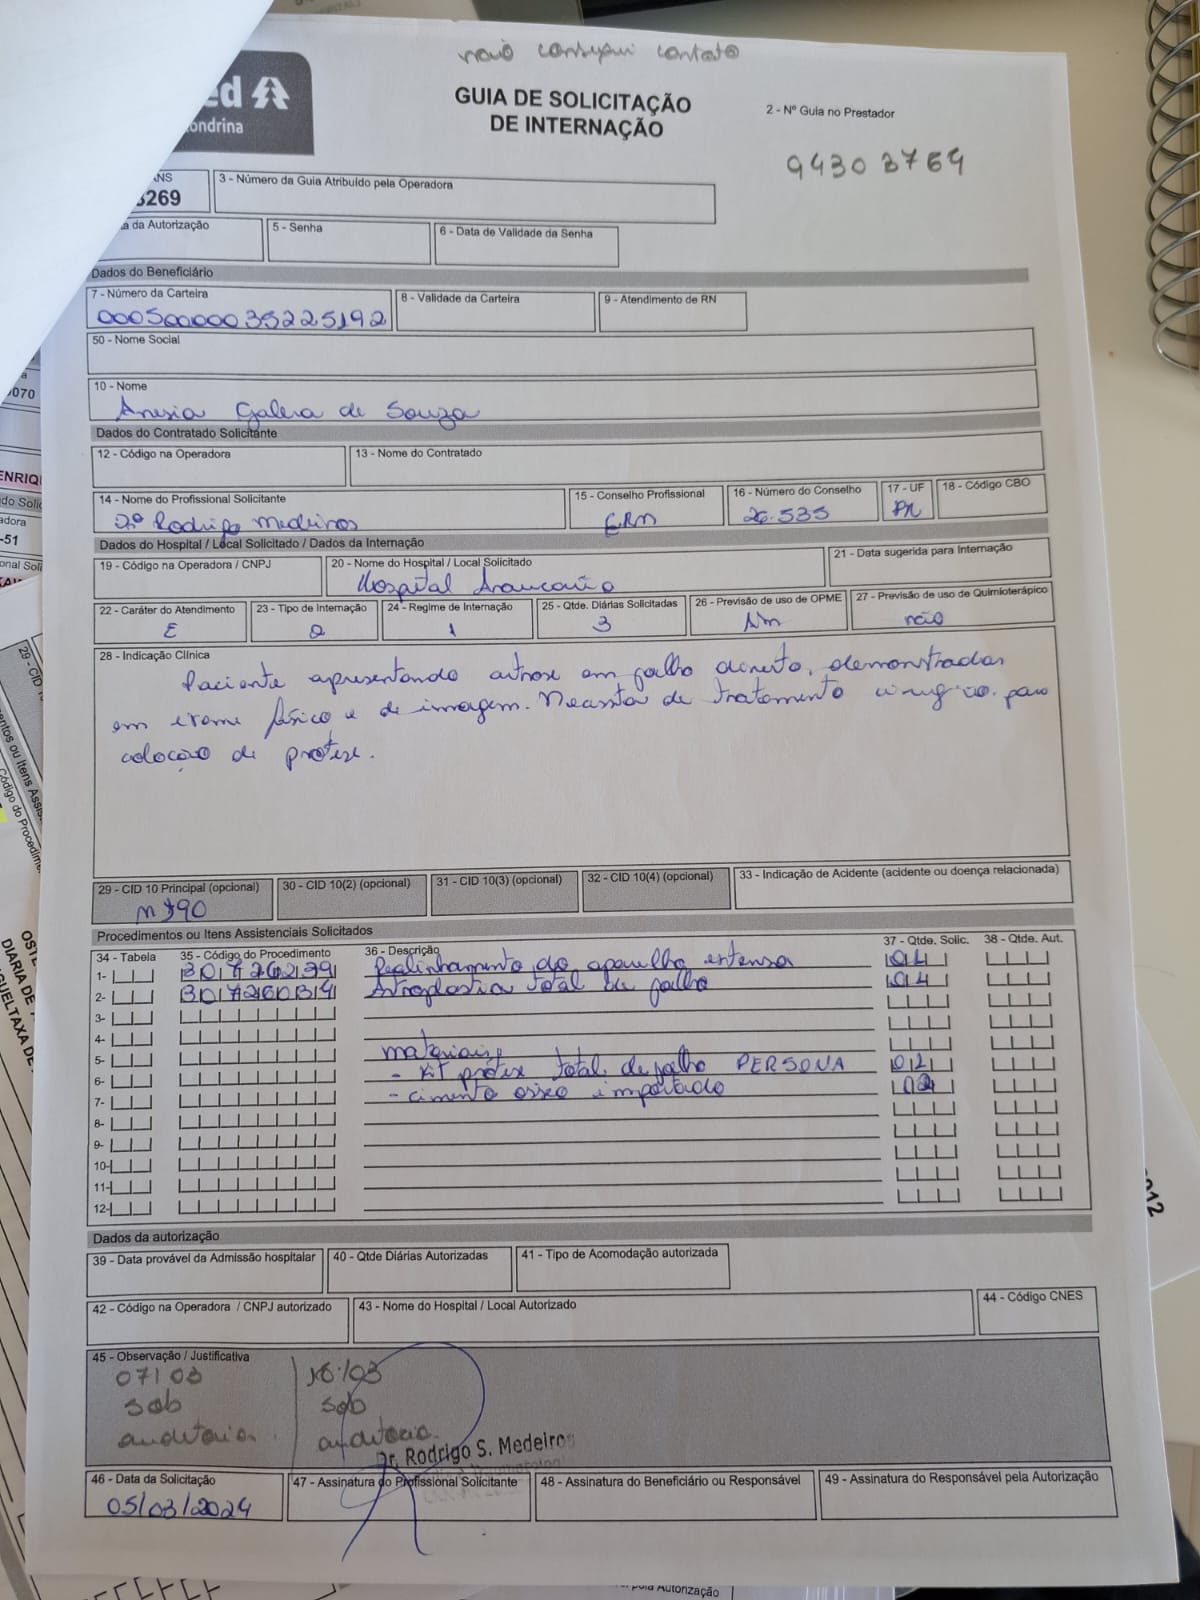 não consegui contato
ed
ondrina
GUIA DE SOLICITAÇÃO
DE INTERNAÇÃO
2 - Nº Guia no Prestador
94303769
ANS
269
3 - Número da Guia Atribuído pela Operadora
da Autorização
5 - Senha
6 - Data de Validade da Senha
Dados do Beneficiário
7 - Número da Carteira
8 - Validade da Carteira
9 - Atendimento de RN
00050000035225192
50 - Nome Social
10 - Nome
Anesia Galera de Souza
Dados do Contratado Solicitante
12 - Código na Operadora
13 - Nome do Contratado
14 - Nome do Profissional Solicitante
15 - Conselho Profissional
16 - Número do Conselho
17 - UF
18 - Código CBO
Rodrigo Medeiros
CRM
26.535
PR
Dados do Hospital / Local Solicitado / Dados da Internação
19 - Código na Operadora / CNPJ
20 - Nome do Hospital / Local Solicitado
21 - Data sugerida para Internação
Hospital Araucária
22 - Caráter do Atendimento
23 - Tipo de Internação
24 - Regime de Internação
25 - Qtde. Diárias Solicitadas
26 - Previsão de uso de OPME
27 - Previsão de uso de Quimioterápico
E
2
1
3
Sim
não
28 - Indicação Clínica
Paciente apresentando artrose em joelho direito, demonstradas
em exame físico e de imagem. Necessita de tratamento cirúrgico para
colocação de prótese.
29 - CID 10 Principal (opcional)
30 - CID 10(2) (opcional)
31 - CID 10(3) (opcional)
32 - CID 10(4) (opcional)
33 - Indicação de Acidente (acidente ou doença relacionada)
M 190
Procedimentos ou Itens Assistenciais Solicitados
34 - Tabela
35 - Código do Procedimento
36 - Descrição
37 - Qtde. Solic.
38 - Qtde. Aut.
1- Realinhamento do aparelho extensor 01
2- Artroplastia total de joelho 01
3-
4-
5- materiais
6- - Kit prótese total de joelho PERSONA 01
7- - cimento ósseo importado 02
8-
9-
10-
11-
12-
Dados da autorização
39 - Data provável da Admissão hospitalar
40 - Qtde Diárias Autorizadas
41 - Tipo de Acomodação autorizada
42 - Código na Operadora / CNPJ autorizado
43 - Nome do Hospital / Local Autorizado
44 - Código CNES
45 - Observação / Justificativa
07/03
sob
auditoria.
18/03
sob
auditoria.
Dr. Rodrigo S. Medeiros
46 - Data da Solicitação
47 - Assinatura do Profissional Solicitante
48 - Assinatura do Beneficiário ou Responsável
49 - Assinatura do Responsável pela Autorização
05/03/2024